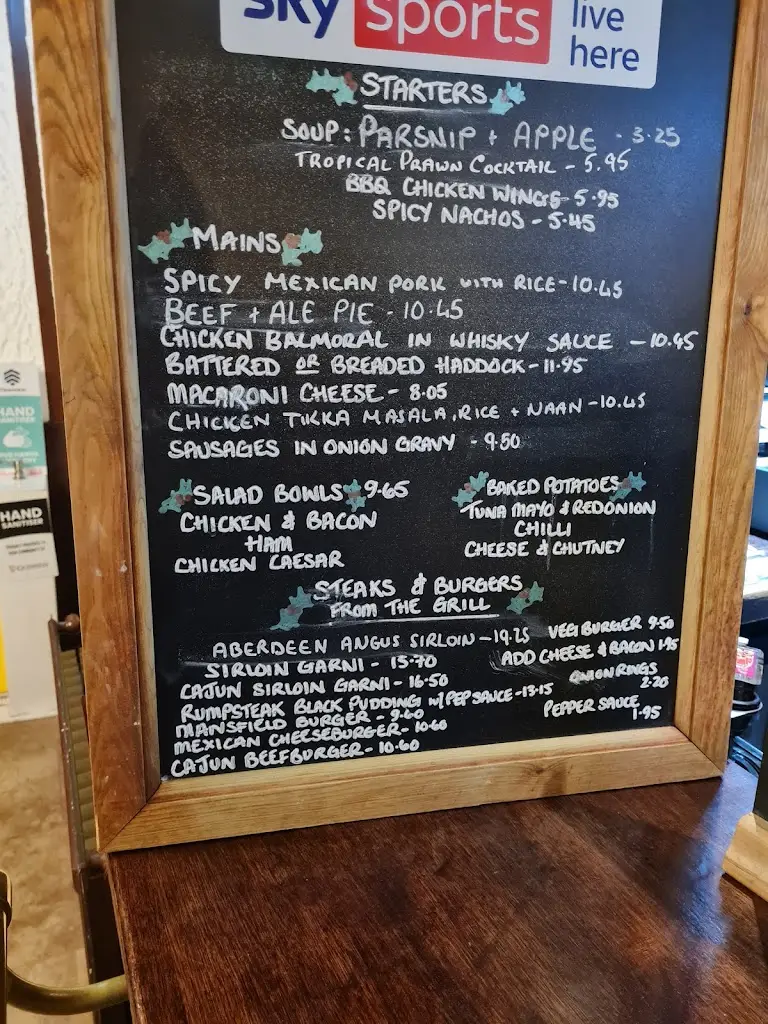 sky sports live here
STARTERS
SOUP: PARSNIP + APPLE - 3.25
TROPICAL PRAWN COCKTAIL - 5.95
BBQ CHICKEN WINGS - 5.95
SPICY NACHOS - 5.45
MAINS
SPICY MEXICAN PORK WITH RICE - 10.45
BEEF + ALE PIE - 10.45
CHICKEN BALMORAL IN WHISKY SAUCE - 10.45
BATTERED OR BREADED HADDOCK - 11.95
MACARONI CHEESE - 8.05
CHICKEN TIKKA MASALA, RICE + NAAN - 10.45
SAUSAGES IN ONION GRAVY - 9.50
SALAD BOWLS 9.65
CHICKEN & BACON
HAM
CHICKEN CAESAR
BAKED POTATOES
TUNA MAYO & RED ONION
CHILLI
CHEESE & CHUTNEY
STEAKS & BURGERS
FROM THE GRILL
ABERDEEN ANGUS SIRLOIN - 19.25
SIRLOIN GARNI - 15.70
CAJUN SIRLOIN GARNI - 16.50
RUMPSTEAK BLACK PUDDING W/ PEP SAUCE - 13.15
MANSFIELD BURGER - 9.60
MEXICAN CHEESEBURGER - 10.60
CAJUN BEEFBURGER - 10.60
VEGI BURGER 9.50
ADD CHEESE & BACON 1.95
ONION RINGS
2.20
PEPPER SAUCE
1.95
HAND
SANITISER
HAND
SANITISER